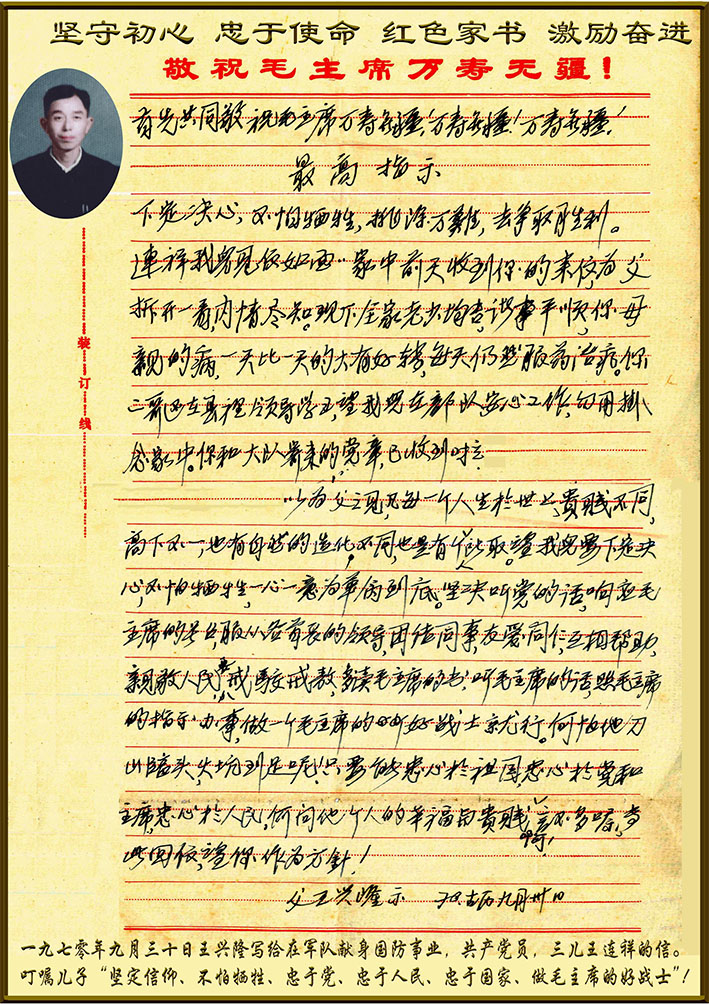 坚守初心 忠于使命 红色家书 激励奋进
敬祝毛主席万寿无疆！
首先共同敬祝毛主席万寿无疆，万寿无疆！万寿无疆！
最高指示
下定决心，不怕牺牲，排除万难，去争取胜利。
連祥我男見仮如面：家中前天收到你的来信，为父
拆开一看，内情尽知。现下全家老少均吉，诸事平顺，你母
親的病，一天比一天的大有好转，每天仍然服药治病。你
二哥还在县裡领导学工，望我男在部队安心工作，勿用掛
念家中。你和大队寄来的党章，已收到
以为父之见，凡每一个人生於世上，貴賤不同，
高下不一，也有自然的造化不同，也是有个能取。望我男要下定决
心，不怕牺牲，一心一意为革命到底。坚决听党的话，响应毛
主席的号召，服从各首长的领导，团结同事，友爱同仁，互相帮助，
親敬人民，戒驕戒傲，多读毛主席的书，听毛主席的话，照毛主席
的指示办事，做一个毛主席的好战士就行。何怕他刀
山碰头，火坑到足呢！只要能忠心於祖国，忠心於党和
主席，忠心於人民，何问他个人的幸福与貴賤，言不多嘱，
此回信，望你作为方針！
父王兴隆示 70.古历九月卅日
装订线
一九七零年九月三十日王兴隆写给在军队献身国防事业，共产党员，三儿王连祥的信。
叮嘱儿子“坚定信仰、不怕牺牲、忠于党、忠于人民、忠于国家、做毛主席的好战士”！